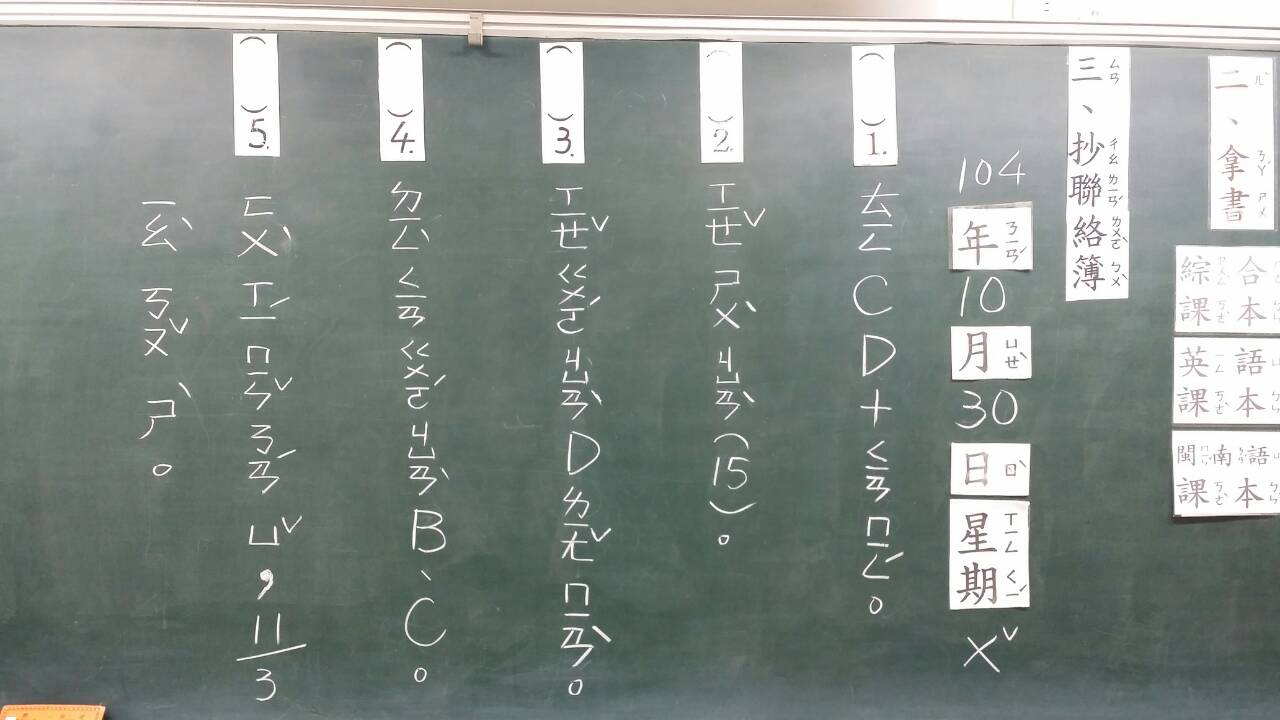 二、拿書
綜合
課本
英語
課本
閩南語
課本
三、抄聯絡簿
104年10月30日星期ㄨˇ
( )1.ㄊㄧㄥCD+ㄑㄧㄢㄇㄧㄥˊ。
( )2.ㄒㄧㄝˇㄕㄨˋㄐㄩㄢˋ(15)。
( )3.ㄒㄧㄝˇㄍㄨㄛˊㄐㄩㄢˋDㄌㄧㄤˇㄇㄧㄢˋ。
( )4.ㄉㄧㄥˋㄑㄧㄢㄍㄨㄛˊㄐㄩㄢˋB、C。
( )5.ㄈㄨˋㄒㄧˊㄇㄧㄣˇㄋㄢˊㄩˇ,11/3
ㄧㄠˋㄎㄡˇㄕˋ。